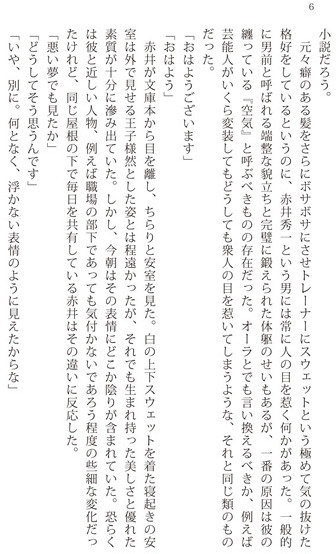 6
小説だろう。
　元々癖のある髪をさらにボサボサにさせトレーナーにスウェットという極めて気の抜けた
格好をしているというのに、赤井秀一という男には常に人の目を惹く何かがあった。一般的
に男前と呼ばれる端整な貌立ちと完璧に鍛えられた体躯のせいもあるが、一番の原因は彼の
纏っている『空気』と呼ぶべきものの存在だった。オーラとでも言い換えるべきか、例えば
芸能人がいくら変装してもどうしても衆人の目を惹いてしまうような、それと同じ類のもの
だった。
「おはようございます」
「おはよう」
　赤井が文庫本から目を離し、ちらりと安室を見た。白の上下スウェットを着た寝起きの安
室は外で見せる王子様然とした姿とは程遠かったが、それでも生まれ持った美しさと優れた
素質が十分に滲み出ていた。しかし、今朝はその表情にどこか陰りが含まれていた。恐らく
は彼と近しい人物、例えば職場の部下であっても気付かないであろう程度の些細な変化だっ
たけれど、同じ屋根の下で毎日を共有している赤井はその違いに反応した。
「悪い夢でも見たか」
「どうしてそう思うんです」
「いや、別に。何となく、浮かない表情のように見えたからな」